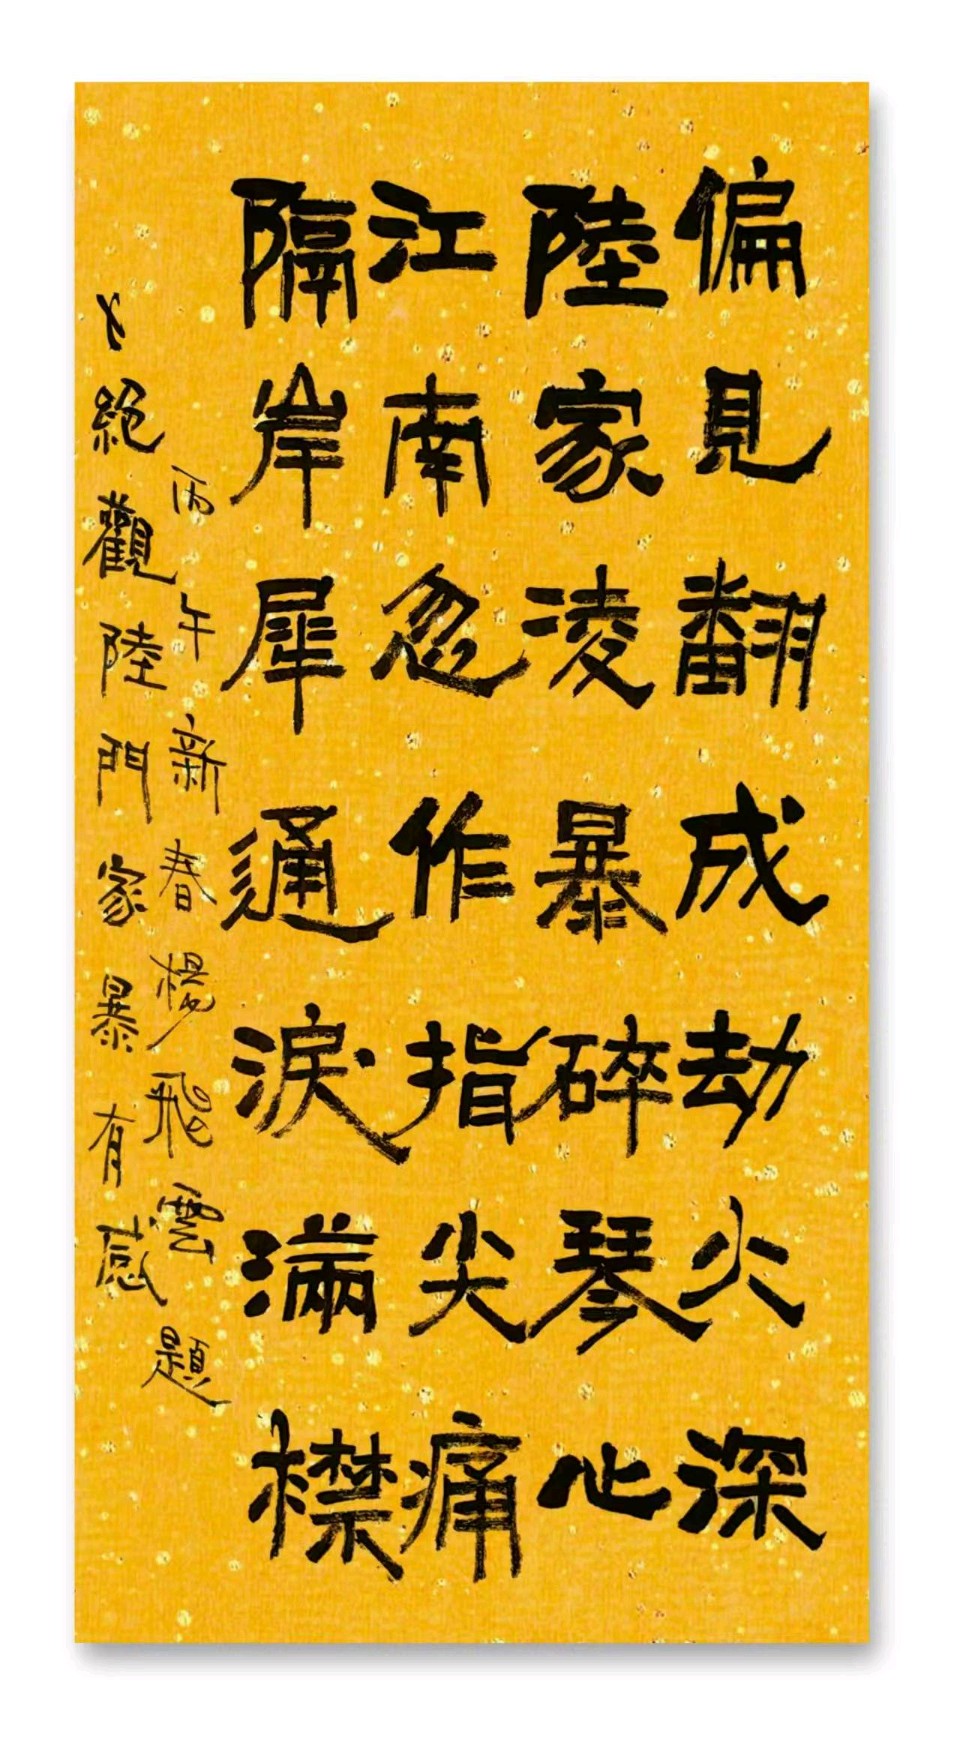 偏見翻成劫火深
陸家凌暴碎琴心
江南忽作指尖痛
隔岸犀通淚滿襟
丙午新春楊飛雲題
七絕觀陸門家暴有感